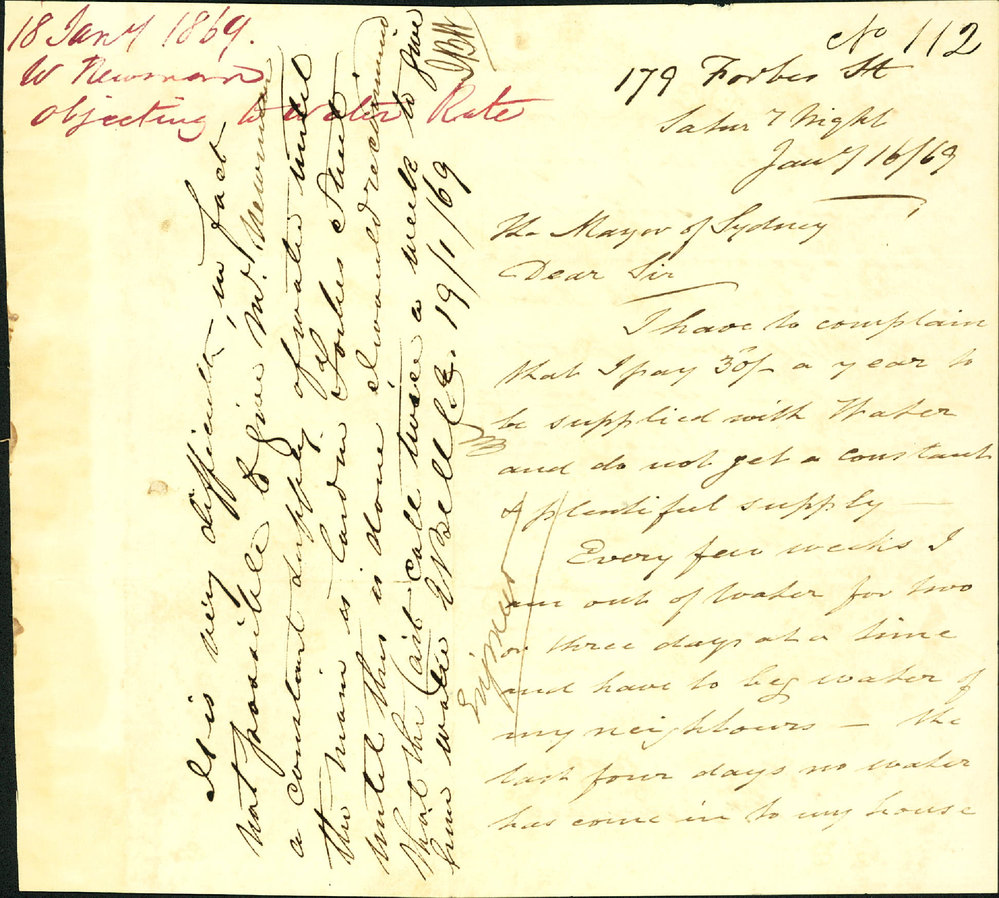 18 Jany 1869.
W Newman
objecting to Water Rate
No 112
179 Forbes St
Satury Night
Jany 16/69
The Mayor of Sydney
Dear Sir
I have to complain
that I pay 30/- a year to
be supplied with Water
and do not get a constant
& plentiful supply —
Every few weeks I
am out of water for two
or three days at a time
and have to beg water of
my neighbours — the
last four days no water
has come in to my house
It is very difficult, in fact
not possible to give Mr. Newman
a constant supply of water until
the main is laid in Forbes Street
until this is done I would recommend
that the cart call twice a week to give
him water E Bell C.E. 19/1/69